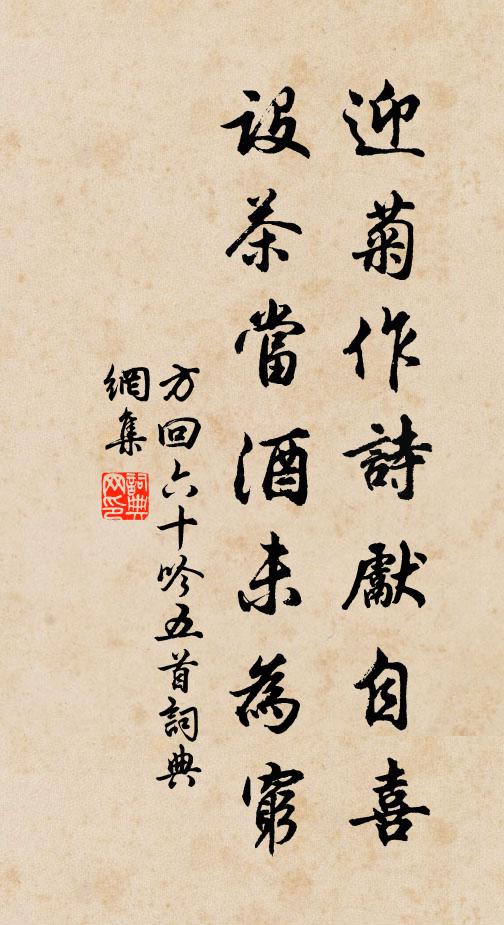 迎菊作詩獻自喜
設茶當酒未為窮
方回六十吟五首詞典
網集
詞典
网印